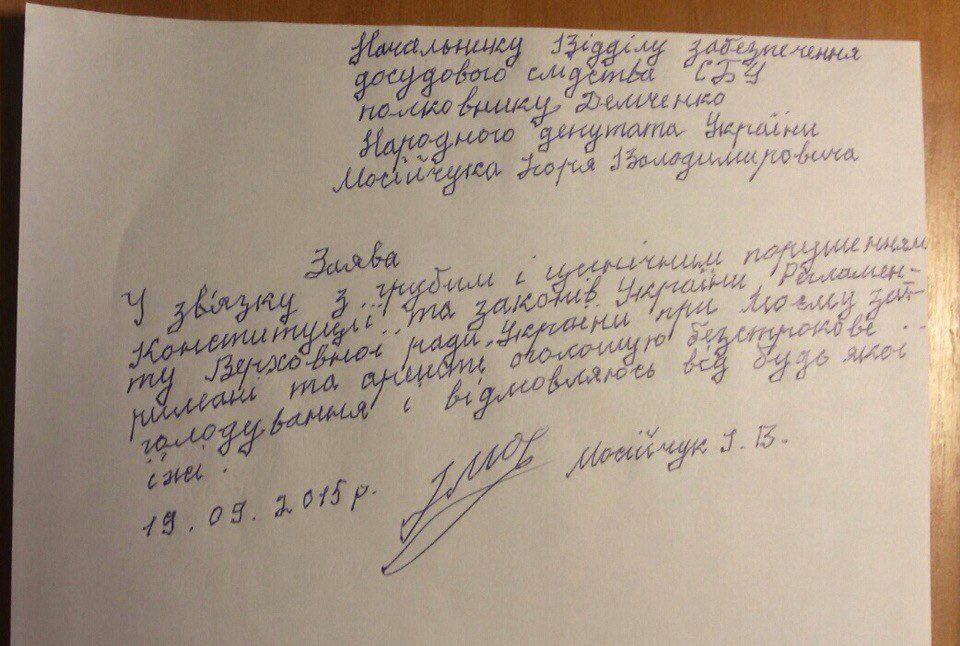 Начальнику Відділу забезпечення
досудового слідства СБУ
полковнику Демченко
Народного депутата України
Мосійчука Ігоря Володимировича
Заява
У зв'язку з грубим і цинічним порушенням
Конституції та законів України Регламен-
ту Верховної ради України при моєму зат-
риманні та арешті оголошую безстрокове
голодування і відмовляюсь від будь якої
їжі.
19.09.2015 р.
Мосійчук І.В.